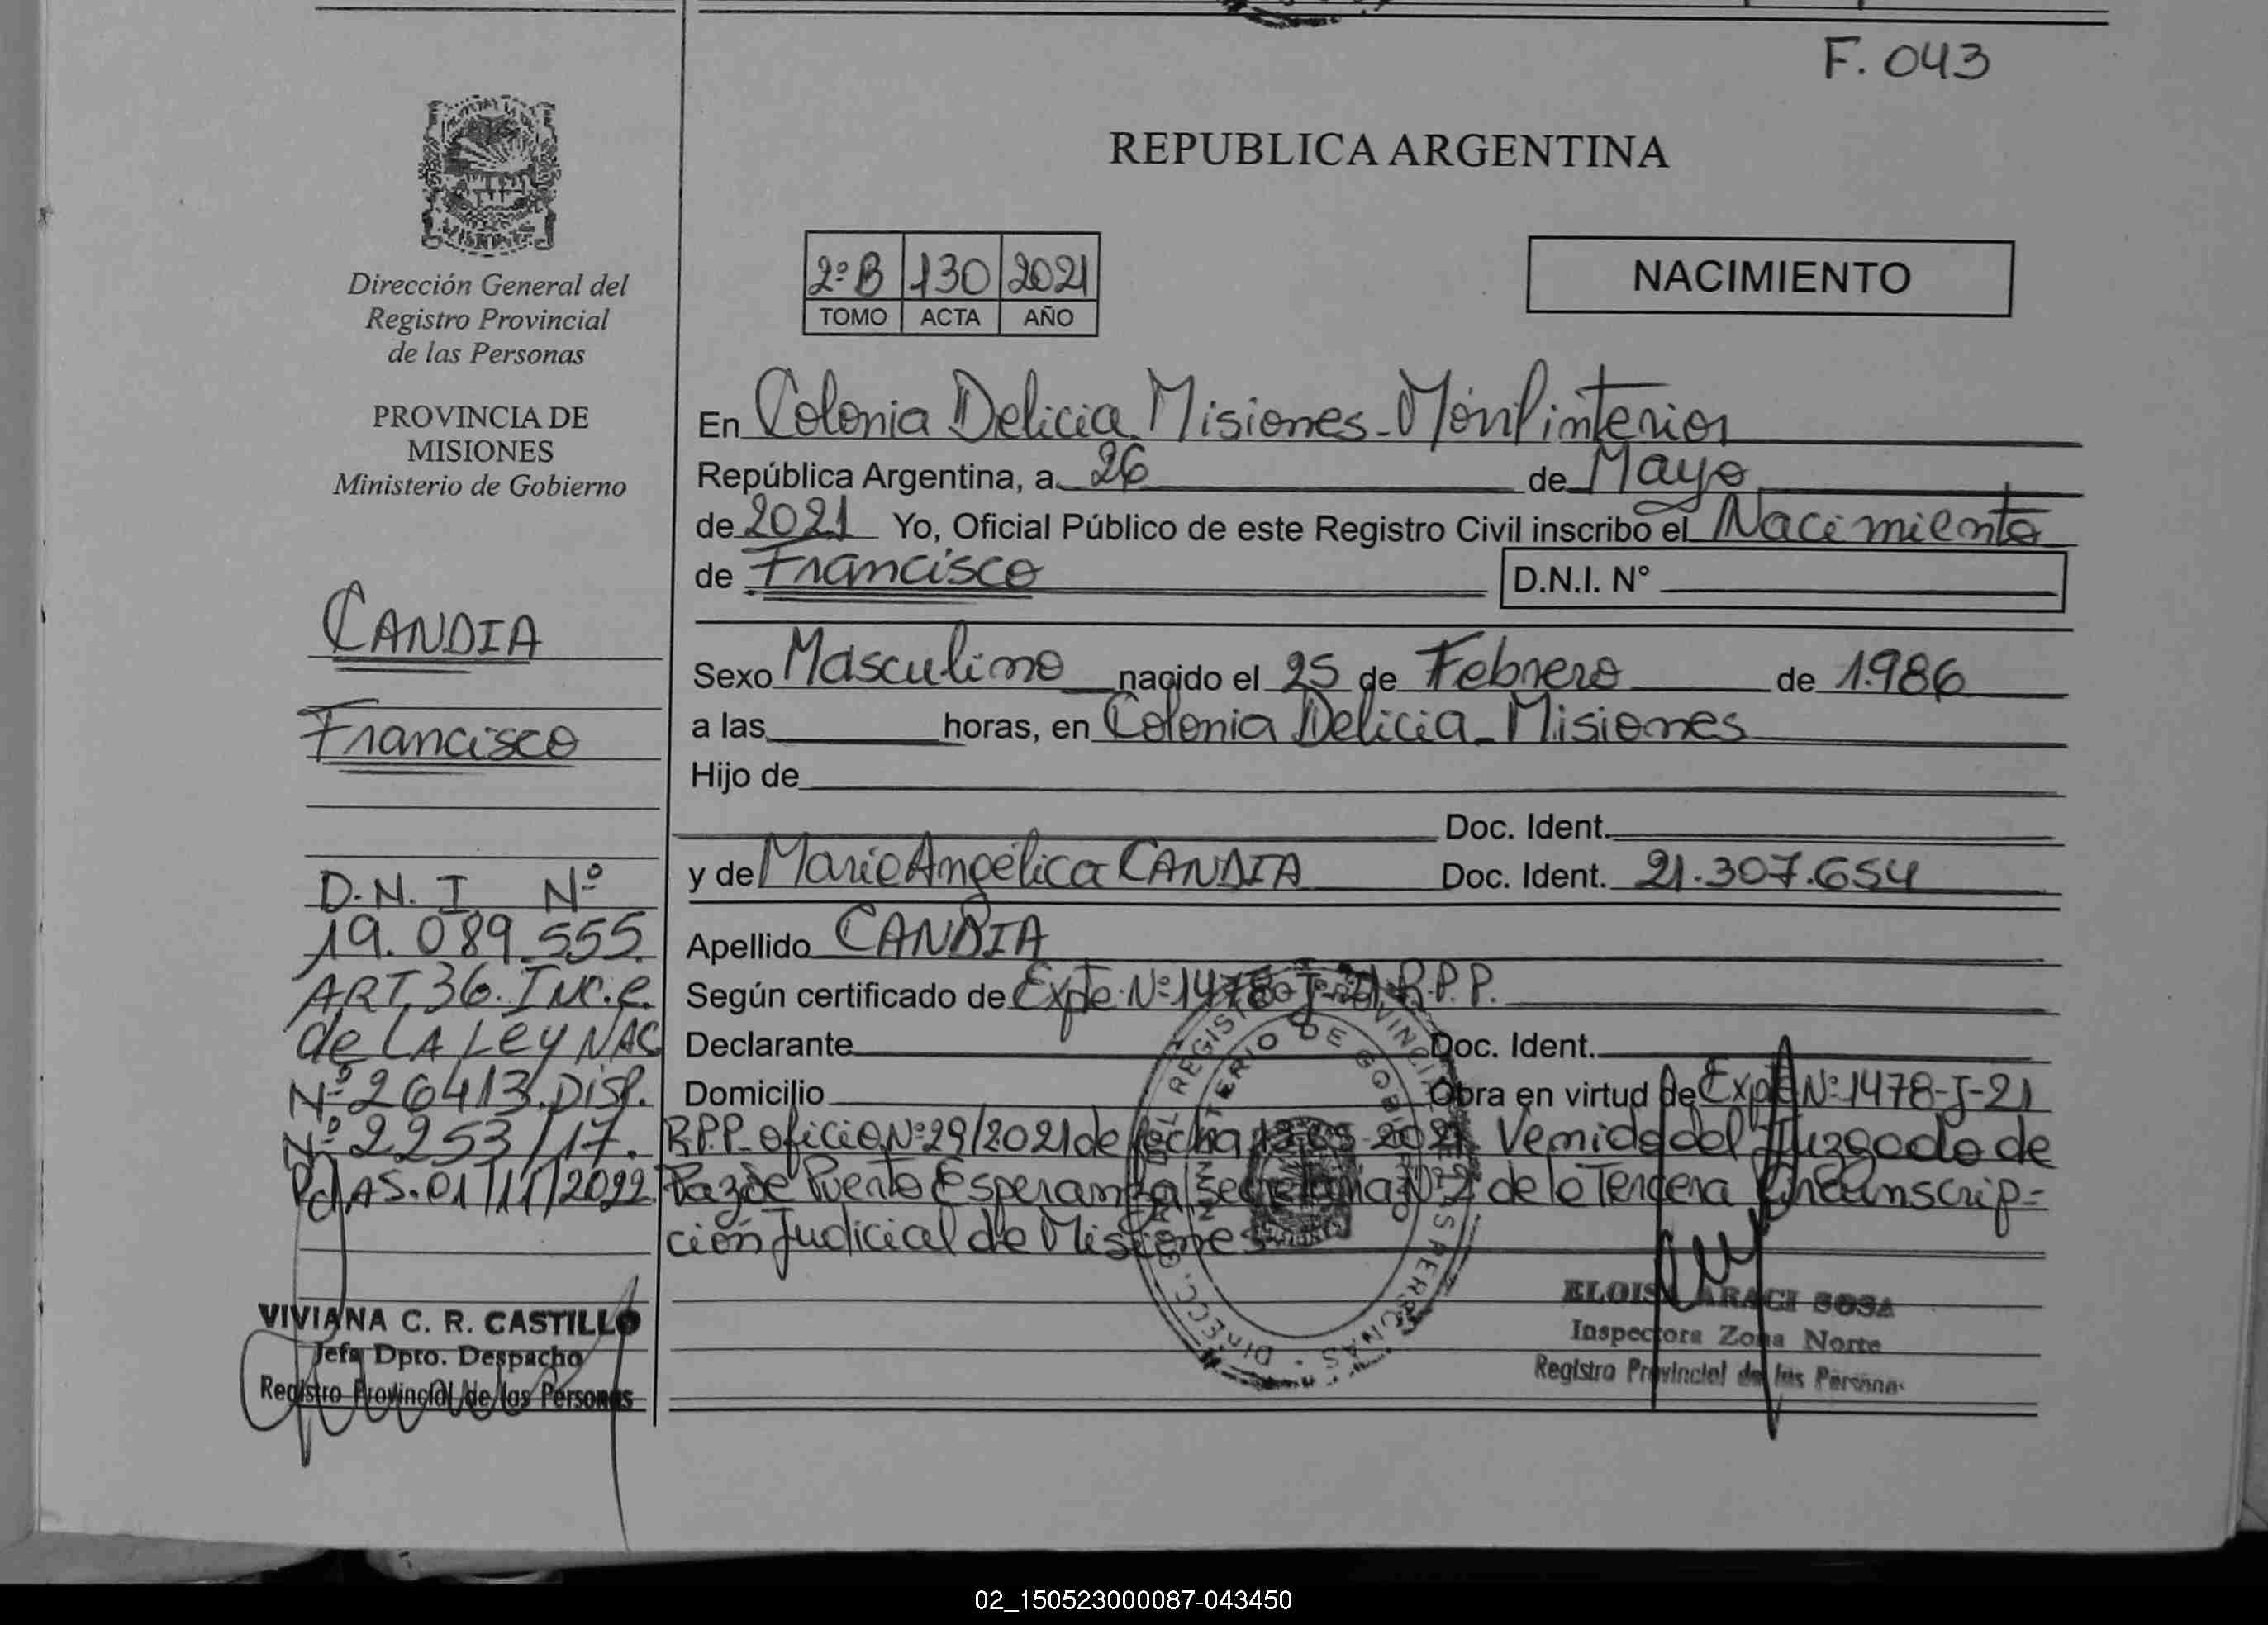 F. 043
REPUBLICA ARGENTINA
Dirección General del
Registro Provincial
de las Personas
PROVINCIA DE
MISIONES
Ministerio de Gobierno
2º B 130 2021
TOMO ACTA AÑO
NACIMIENTO
En Colonia Delicia Misiones - Móvil interior
República Argentina, a 26 de Mayo
de 2021 Yo, Oficial Público de este Registro Civil inscribo el Nacimiento
de Francisco D.N.I. N°
Sexo Masculino nacido el 25 de Febrero de 1.986
a las horas, en Colonia Delicia - Misiones
Hijo de
Doc. Ident.
y de Maria Angélica CANDIA Doc. Ident. 21.307.654
Apellido CANDIA
Según certificado de Expte Nº 1478-J-21 R.P.P.
Declarante Doc. Ident.
Domicilio Obra en virtud de Expte Nº 1478-J-21
R.P.P. oficio Nº 29/2021 de fecha 2021 Venido del Juzgado de
Paz de Puerto Esperanza Secretaria Nº 2 de la Tercera Circunscrip=
ción Judicial de Misiones
CANDIA
Francisco
D.N.I. Nº
19.089.555
ART. 36. Inc. e.
de LA Ley NAC
Nº 26413. DISP.
Nº 2253/17.
PdAS. 01/11/2022
VIVIANA C. R. CASTILLO
Jefa Dpto. Despacho
Registro Provincial de las Personas
DIRECC. GRAL DEL REGISTRO PROVINCIAL DE LAS PERSONAS
MINISTERIO DE GOBIERNO
ELOISA ARACI SOSA
Inspectora Zona Norte
Registro Provincial de las Personas
02_150523000087-043450